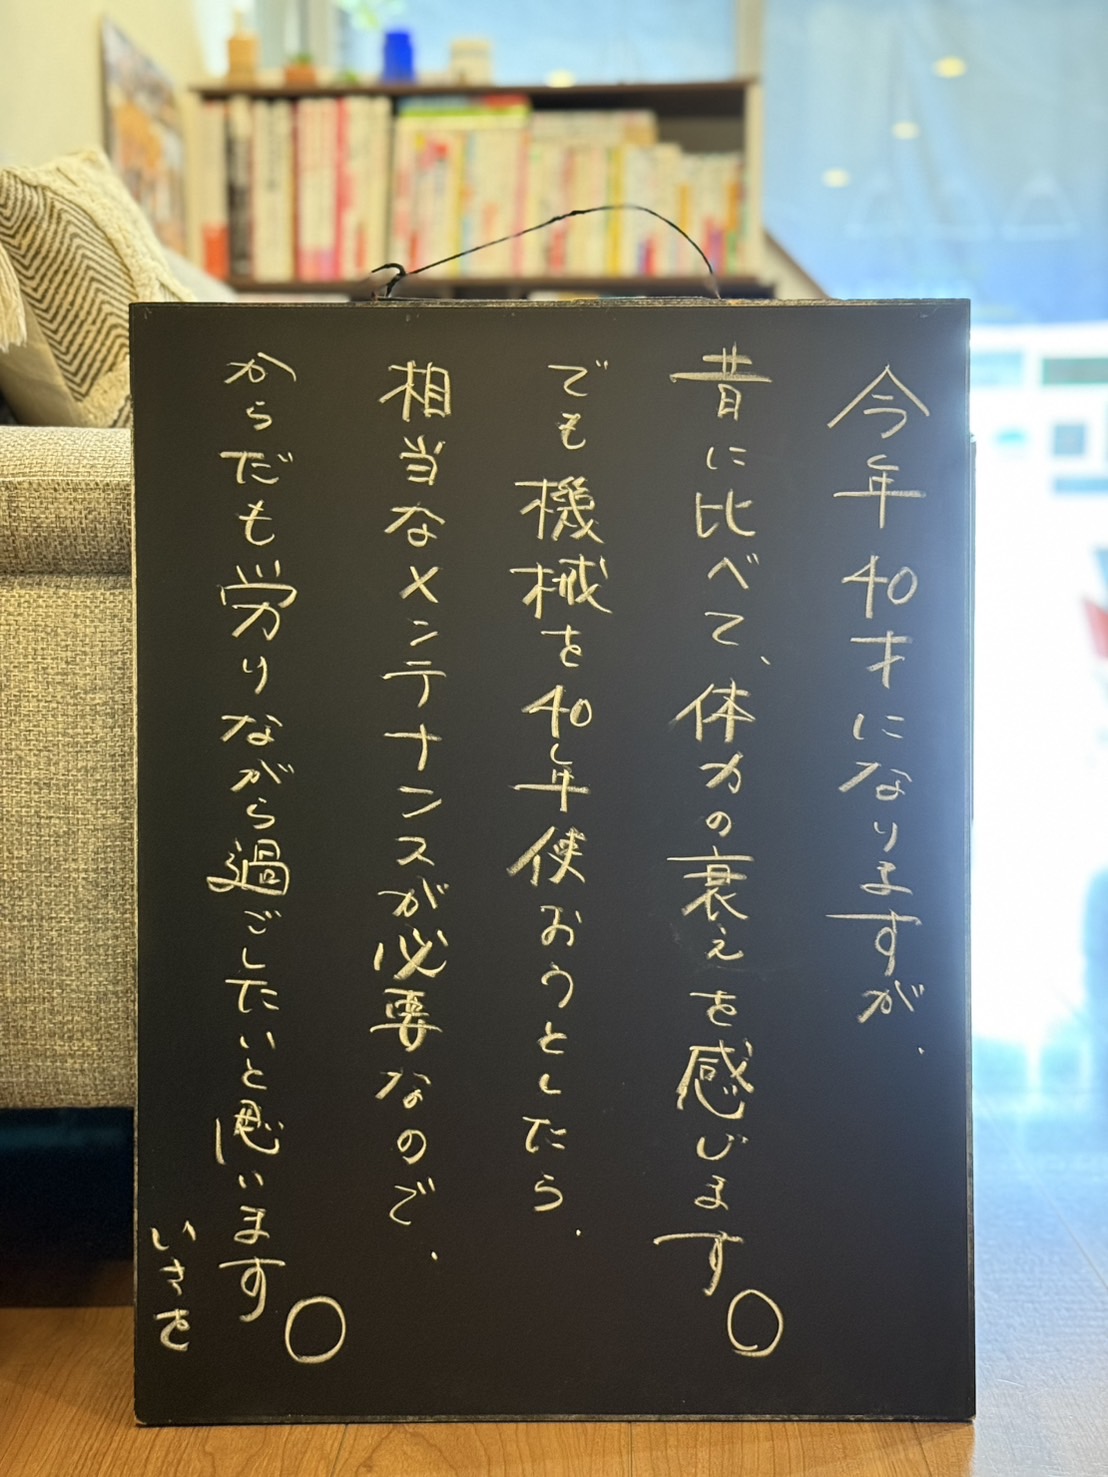 今年40才になりますが、
昔に比べて、体力の衰えを感じます。
でも機械を40年使おうとしたら、
相当なメンテナンスが必要なので、
からだも労りながら過ごしたいと思います。
いさを